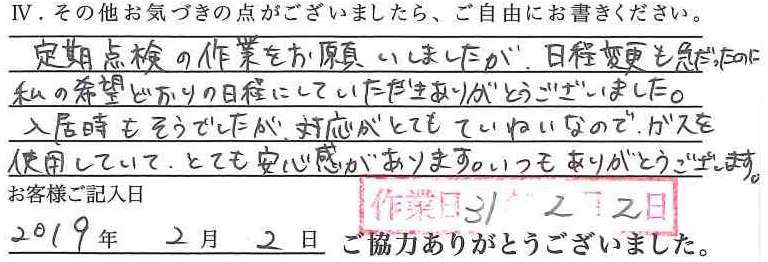 Ⅳ．その他お気づきの点がございましたら、ご自由にお書きください。
定期点検の作業をお願いしましたが、日程変更も急だったのに
私の希望どおりの日程にしていただきありがとうございました。
入居時もそうでしたが、対応がとてもていねいなので、ガスを
使用していて、とても安心感があります。いつもありがとうございます。
お客様ご記入日
作業日 31年 2月 2日
2019年 2月 2日 ご協力ありがとうございました。